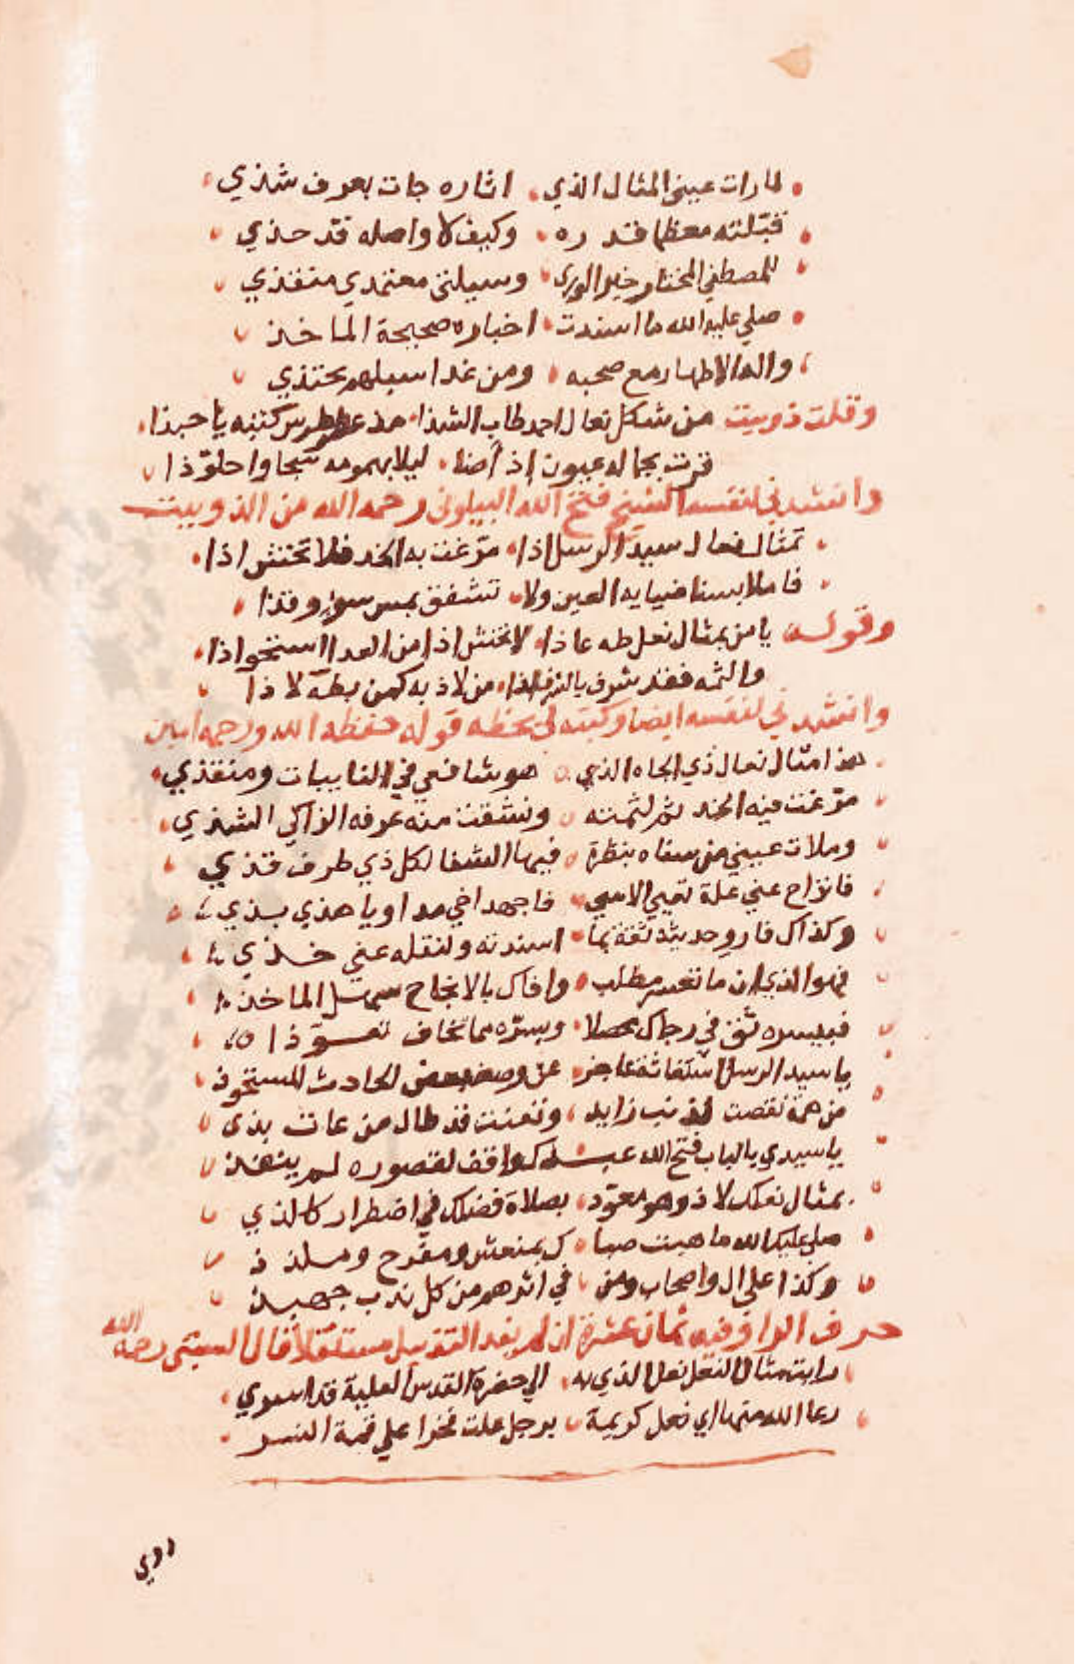 لما رات عيني المثال الذي اثاره جات بعرف شذي
قبلته معظما قدره وكيف لا واصله قد حذي
للمصطفي المختار خير الوري وسيلتي معتمدي منقذي
صلي عليه الله ما اسندت اخباره صحيحة الماخذ
واله الاطهار مع صحبه ومن غدا سبلهم يحتذي
وقلت ذوبيت من شكل نعال احمد طاب الشذا مذ عطر طرس كتبه يا حبذا
قرت بجماله عيون إذ أضا ليلا بهمومه واحلوّذا
وانشدني لنفسه الشيخ فتح الله البيلوني رحمه الله من الذوبيت
تمثال نعال سيد الرسل اذا مرّغت به الخد فلا تختش اذا
فاملا بسنا ضيايه العين ولا تشفق بمس سوء وقذا
وقوله يا من بمثال نعل طه عاذا لا تختش اذا من العدا استحواذا
والثمه فقد شرف من لاذ به كمن بطه لاذا
وانشدني لنفسه ايضا وكتبه لي بخطه قوله حفظه الله ورحمه امين
هذا مثال نعال ذي الجاه الذي هو شافعي في النايبات ومنقذي
مرّغت فيه الخد ثم لثمته ونشقت منه عرفه الزاكي الشذي
وملات عيني من سناه بنظرة فيها الشفا لكل ذي طرف قذي
فانزاح عني علة تعيي الاسي فاجهد اخي مداويا هذي بذي
وكذاك فارو حديثه ثقة بما اسندته ولنقله عني خذي
فهو الذي ان ما تعسر مطلب وافاك بالانجاح سهل الماخذ
فبيسره ثق في رجاك محصلا وبسرّه مما تخاف تعوّذا
يا سيد الرسل استغاثة عاجز عن وصف بعض الحادث المستحوذ
من همة نقصت لذنب زايد وتعنت قد طال من عات بذي
يا سيدي بالباب فتح الله عبدك واقف لقصوره لم ينفذ
بمثال نعلك لاذ وهو معوّد بصلاة فضلك في اضطرار كالذي
صلي عليك الله ما هبت صبا بمنعش ومفرح وملذذ
وكذا علي ال واصحاب ومن في اثرهم من كل ندب جهبذ
حرف الرا وفيه ثمان عشرة ان لم يعد التذييل مستقلا قال السبتي رحمه الله
رايت مثال النعل نعل الذي به الي حضرة القدس العلية قد اسري
رعا الله منها اي نعل كريمة برجل علت فخرا علي قمة النسر